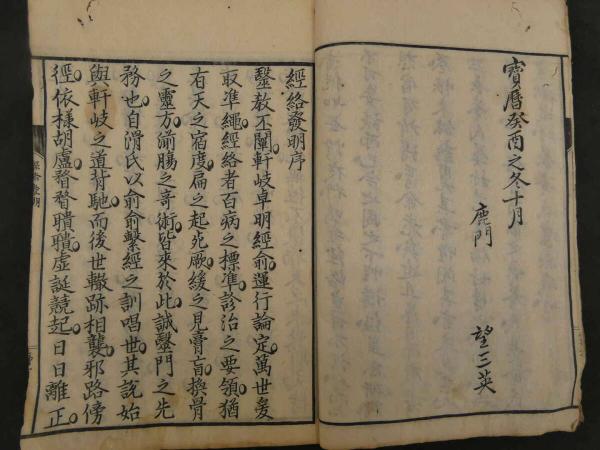 寶曆癸酉之冬十月
鹿門 望三英
經絡發明序
毉教丕闡軒岐卓明經俞運行論定萬世爰
取準繩經絡者百病之標準診治之要領猶
有天之宿度扁之起死厥緩之見膏盲換骨
之靈方湔腸之奇術皆來於此誠毉門之先
務也自滑氏以俞俞繫經之訓唱世其說始
與軒岐之道背馳而後世轍跡相襲邪路傍
徑依樣胡盧瞀瞀瞶瞶虛誕競起日日離正